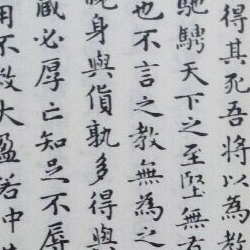 得其死吾將以為教
馳騁天下之至堅無
也不言之教無為之
身與貨孰多得與
藏必厚亡知足不辱
用不敝大盈若